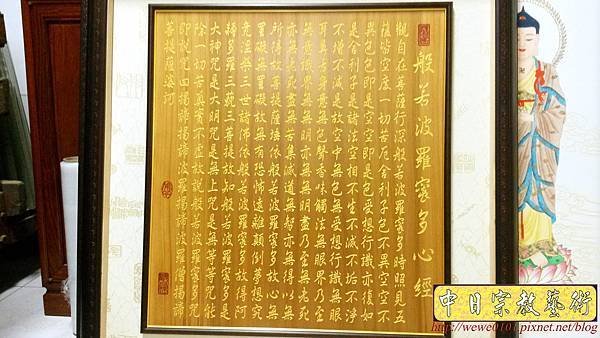 般若波羅蜜多心經
觀自在菩薩行深般若波羅蜜多時照見五
蘊皆空度一切苦厄舍利子色不異空空不
異色色即是空空即是色受想行識亦復如
是舍利子是諸法空相不生不滅不垢不淨
不增不減是故空中無色無受想行識無眼
耳鼻舌身意無色聲香味觸法無眼界乃至
無意識界無無明亦無無明盡乃至無老死
亦無老死盡無苦集滅道無智亦無得以無
所得故菩提薩埵依般若波羅蜜多故心無
罣礙無罣礙故無有恐怖遠離顛倒夢想究
竟涅槃三世諸佛依般若波羅蜜多故得阿
耨多羅三藐三菩提故知般若波羅蜜多是
大神咒是大明咒是無上咒是無等等咒能
除一切苦真實不虛故說般若波羅蜜多咒
即說咒曰揭諦揭諦波羅揭諦波羅僧揭諦
菩提薩婆訶
中日宗教藝術
http://wewe0101.pixnet.net/blog